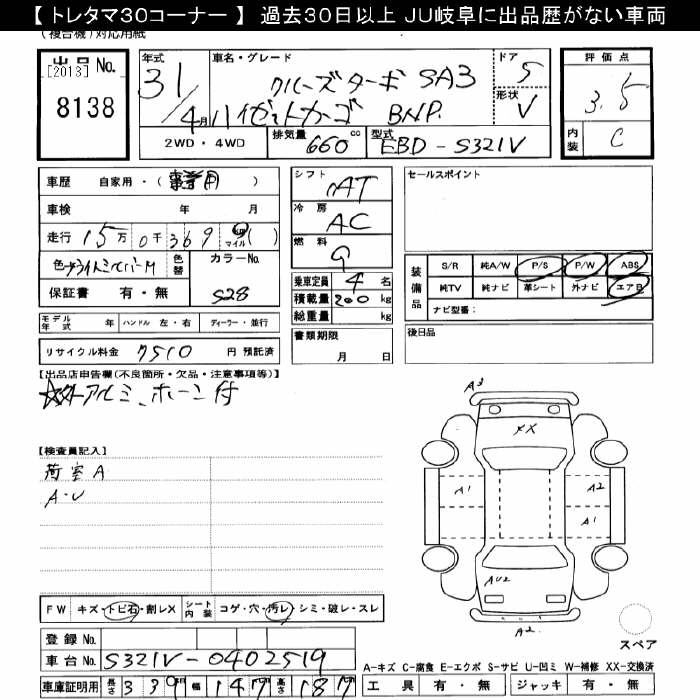 【 トレタマ30コーナー 】 過去30日以上 JU岐阜に出品歴がない車両
(複合機)対応用紙
出品 No.
[2013]
8138
年式
31/4月
車名・グレード
クルーズターボ SA3
ハイゼットカーゴ BNP.
ドア
5
形状
V
2WD・4WD
排気量
660 cc
型式
EBD-S321V
評価点
3.5
内装
C
車歴 自家用・(事業用)
車検 年 月
走行 15万 0千 369 km マイル ( )
色 ブライトシルバーM
色替
カラーNo.
S28
保証書 有・無
モデル年式 年 ハンドル 左・右 ディーラー・並行
リサイクル料金 7510 円 預託済
シフト
AT
冷房
AC
燃料
G
乗車定員 4 名
積載量 200 kg
総重量 kg
書類期限
月 日
セールスポイント
装備品
S/R 純A/W P/S P/W ABS
純TV 純ナビ 革シート 外ナビ エアB
ナビ型番:
後日品
【出品店申告欄(不良箇所・欠品・注意事項等)】
アルミ、ホーン付
【検査員記入】
荷室A
A・U
A3
XX
A1
A2
A1
AU2
A2
スペア
FW キズ・トビ石・割レX シート内装 コゲ・穴・汚レ・シミ・破レ・スレ
登録 No.
車台 No. S321V-0402519
車庫証明用 長さ 339 幅 147 高さ 187
A-キズ C-腐食 E-エクボ S-サビ U-凹ミ W-補修 XX-交換済
工具 有・無 ジャッキ 有・無